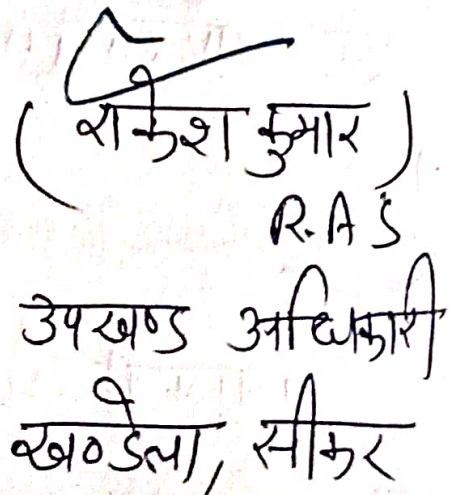 (राकेश कुमार)
R.A.S
उपखण्ड अधिकारी
खण्डेला, सीकर